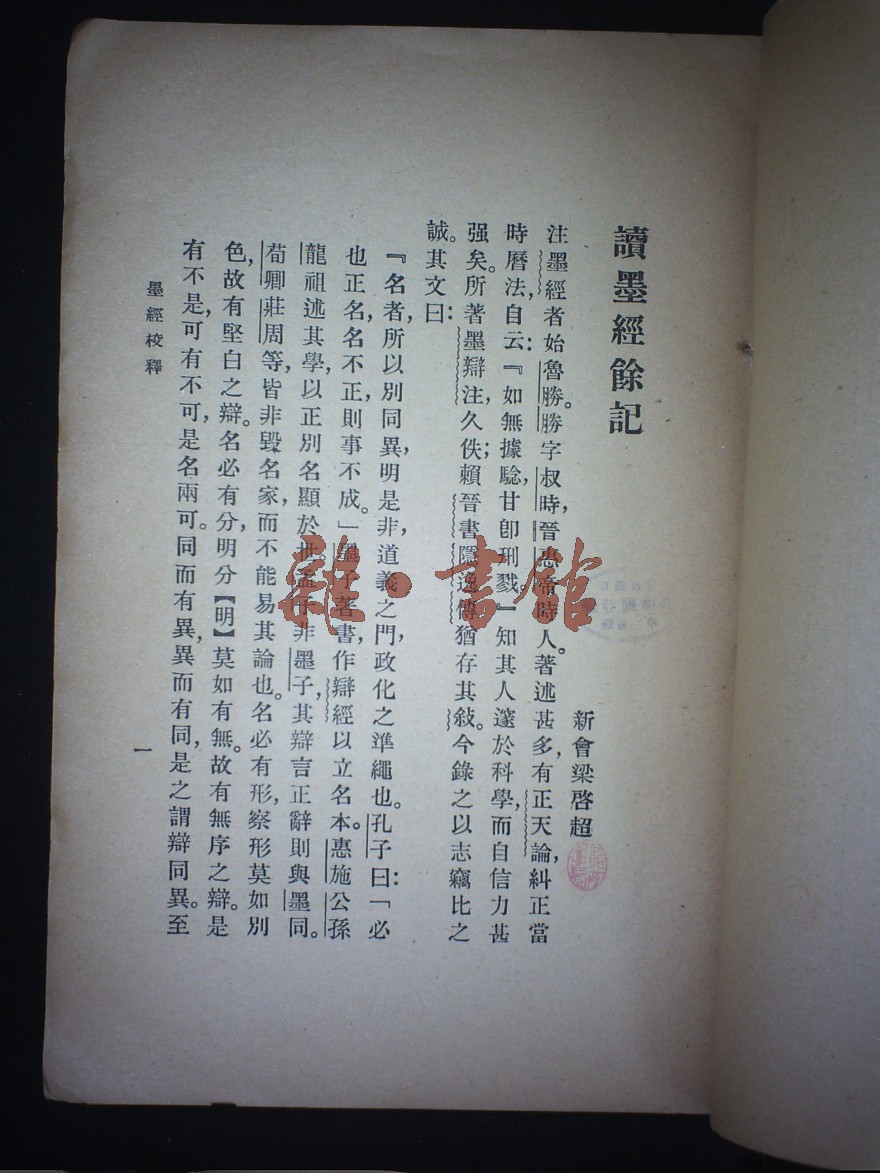 讀墨經餘記
新會梁啓超
注墨經者始魯勝。勝字叔時，晉惠帝時人。著述甚多，有正天論，糾正當
時曆法，自云：『如無據驗，甘卽刑戮。』知其人邃於科學，而自信力甚
强矣。所著墨辯注，久佚；賴晉書隱逸傳猶存其敍。今錄之以志竊比之
誠。其文曰：
『名者，所以別同異，明是非，道義之門，政化之準繩也。孔子曰：「必
也正名，名不正則事不成。」墨子著書，作辯經以立名本。惠施公孫
龍祖述其學，以正別名顯於世。孟子非墨子，其辯言正辭則與墨同。
荀卿莊周等，皆非毀名家，而不能易其論也。名必有形，察形莫如別
色，故有堅白之辯。名必有分，明分【明】莫如有無。故有無序之辯。是
有不是，可有不可，是名兩可。同而有異，異而有同，是之謂辯同異。至
墨經校釋
一
雜·書館